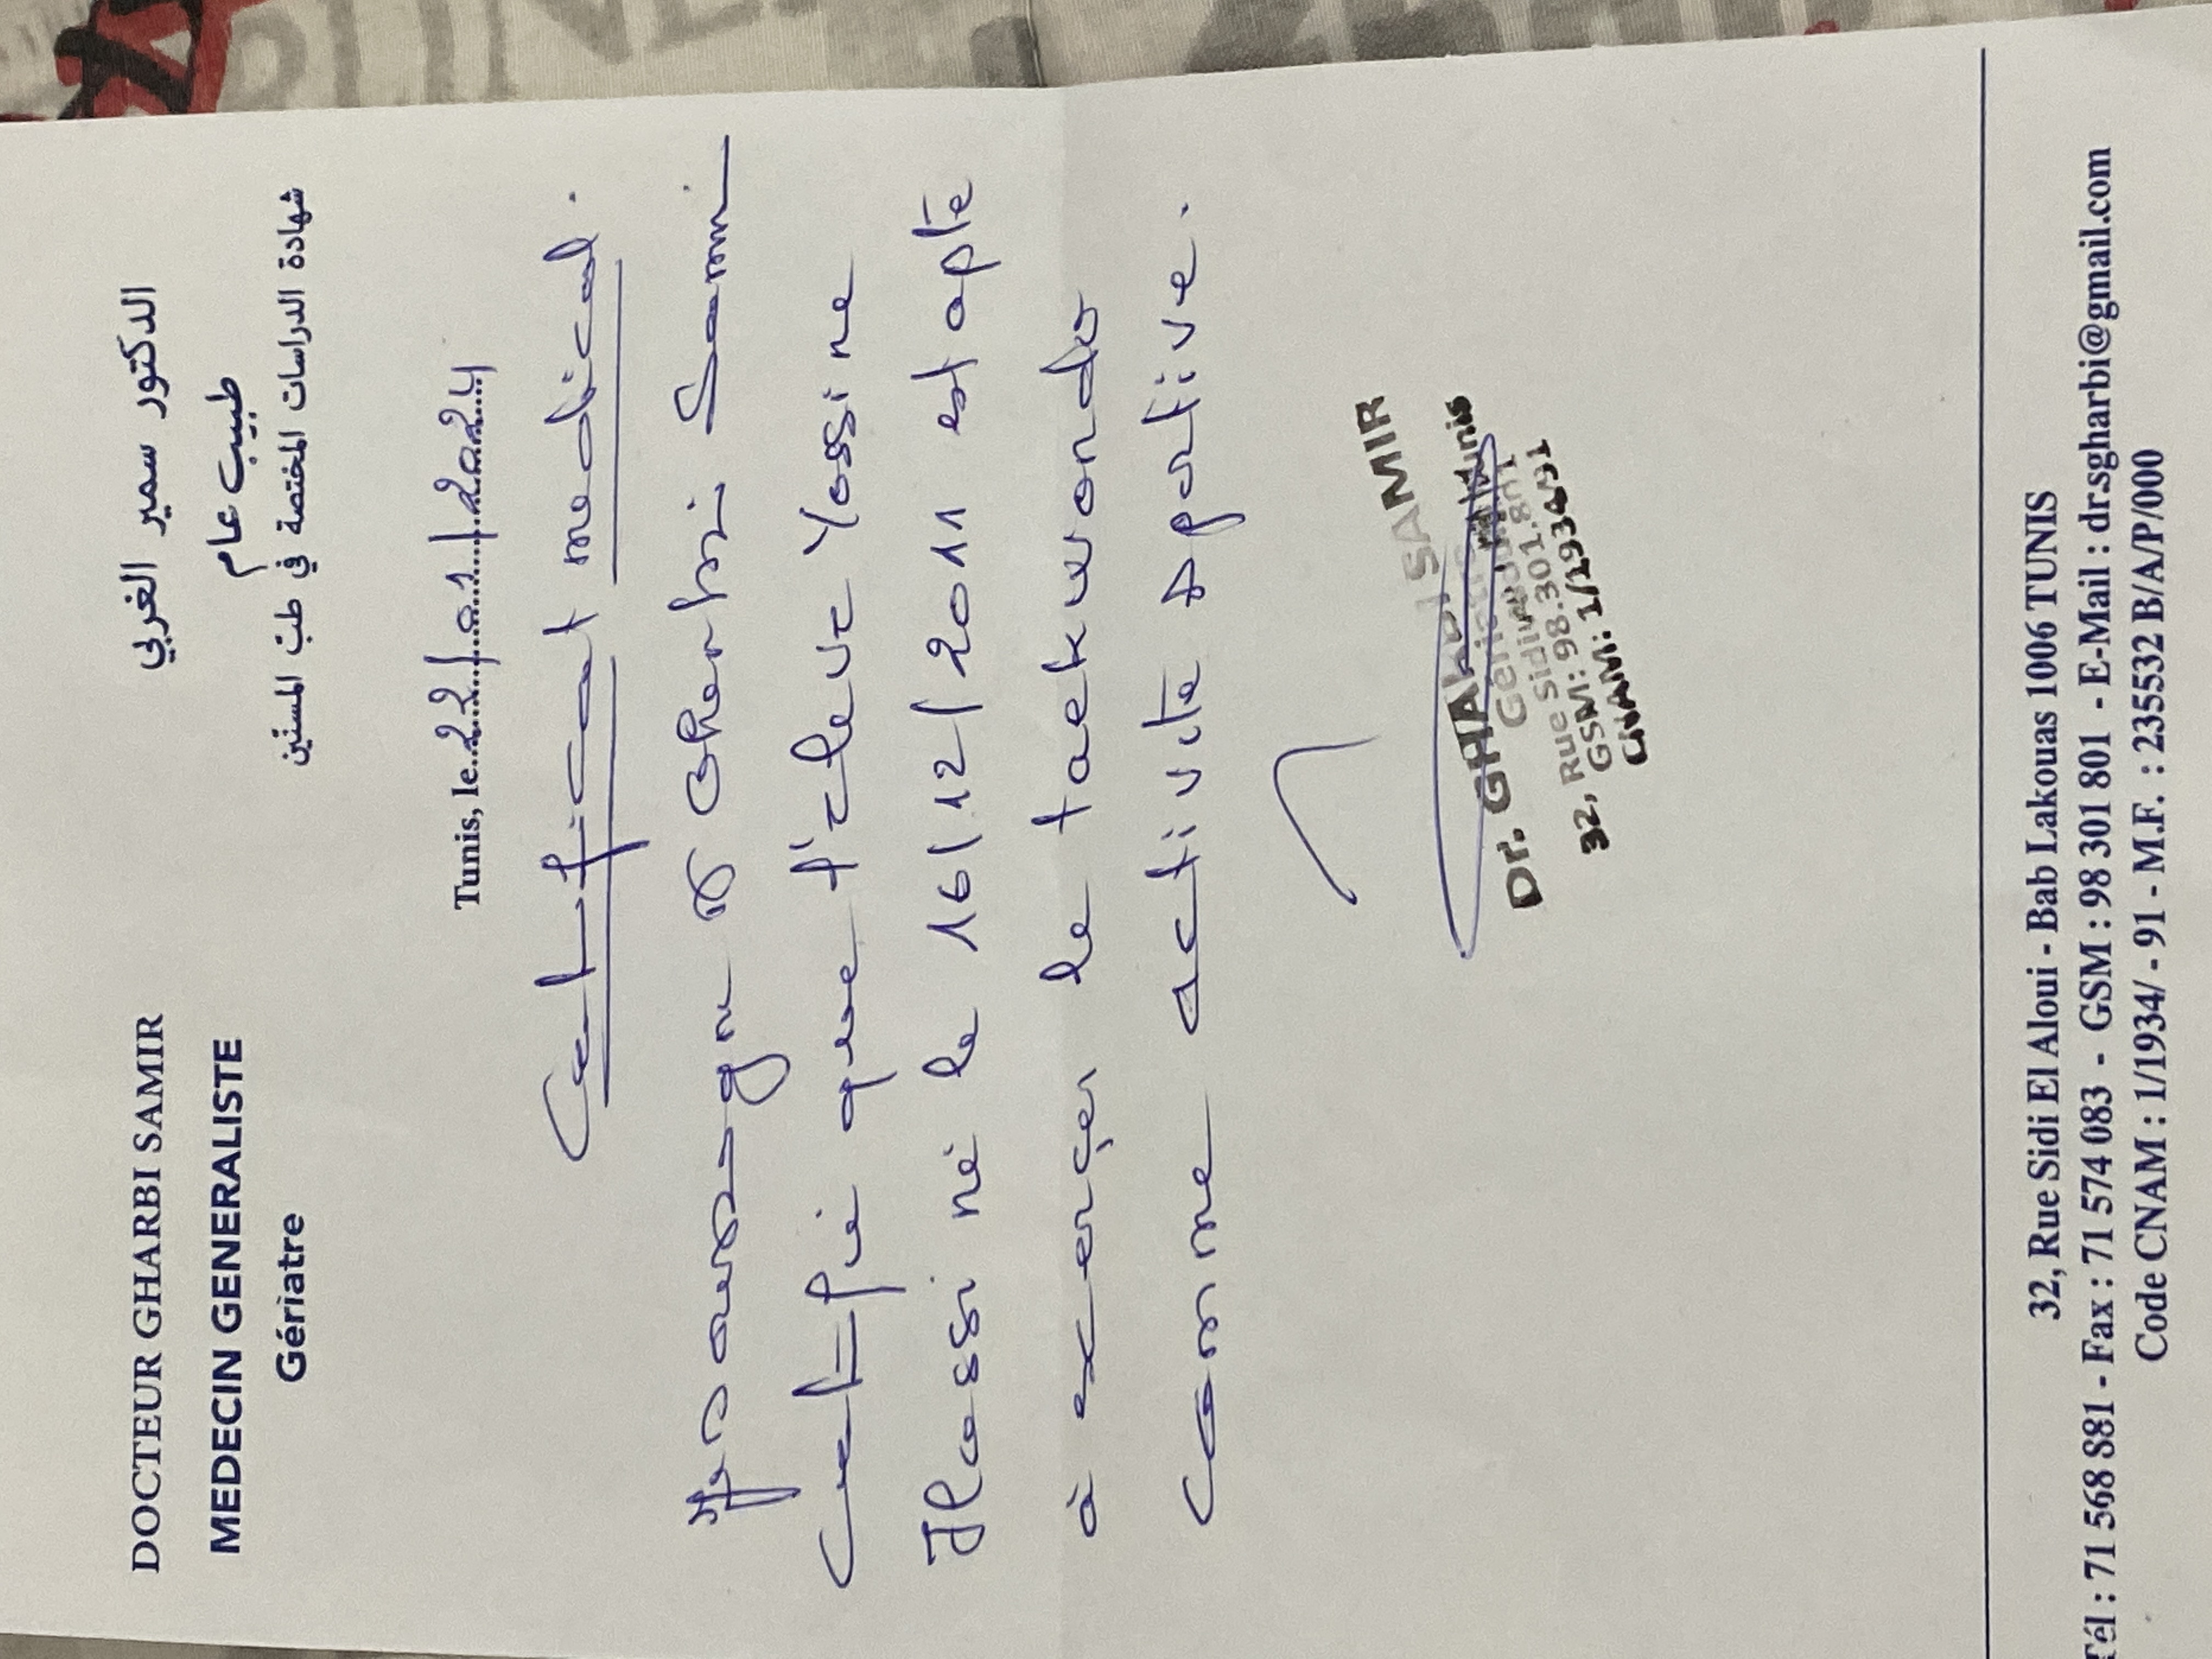 DOCTEUR GHARBI SAMIR
MEDECIN GENERALISTE
Gériatre
الدكتور سمير الغربي
طبيب عام
شهادة الدراسات المختصة في طب المسنين
Tunis, le 22/01/2024
Certificat medical.
Je soussigné Dr Gharbi Samir
certifie que l'élève Yassine
Hassi né le 16/12/2011 est apte
à exerçer le taekwondo
comme activité sportive.
Dr. GHARBI SAMIR
32, Rue Sidi
GSM: 98.301.801
CNAM: 1/1934/91
32, Rue Sidi El Aloui - Bab Lakouas 1006 TUNIS
Tél : 71 568 881 - Fax : 71 574 083 - GSM : 98 301 801 - E-Mail : dr.sgharbi@gmail.com
Code CNAM : 1/1934/ - 91 - M.F. : 235532 B/A/P/000